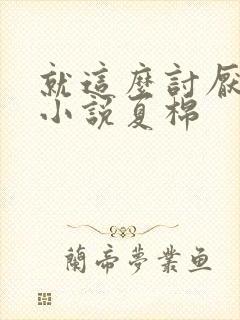 就這麼討厭
小說夏棉
蘭帝夢業魚